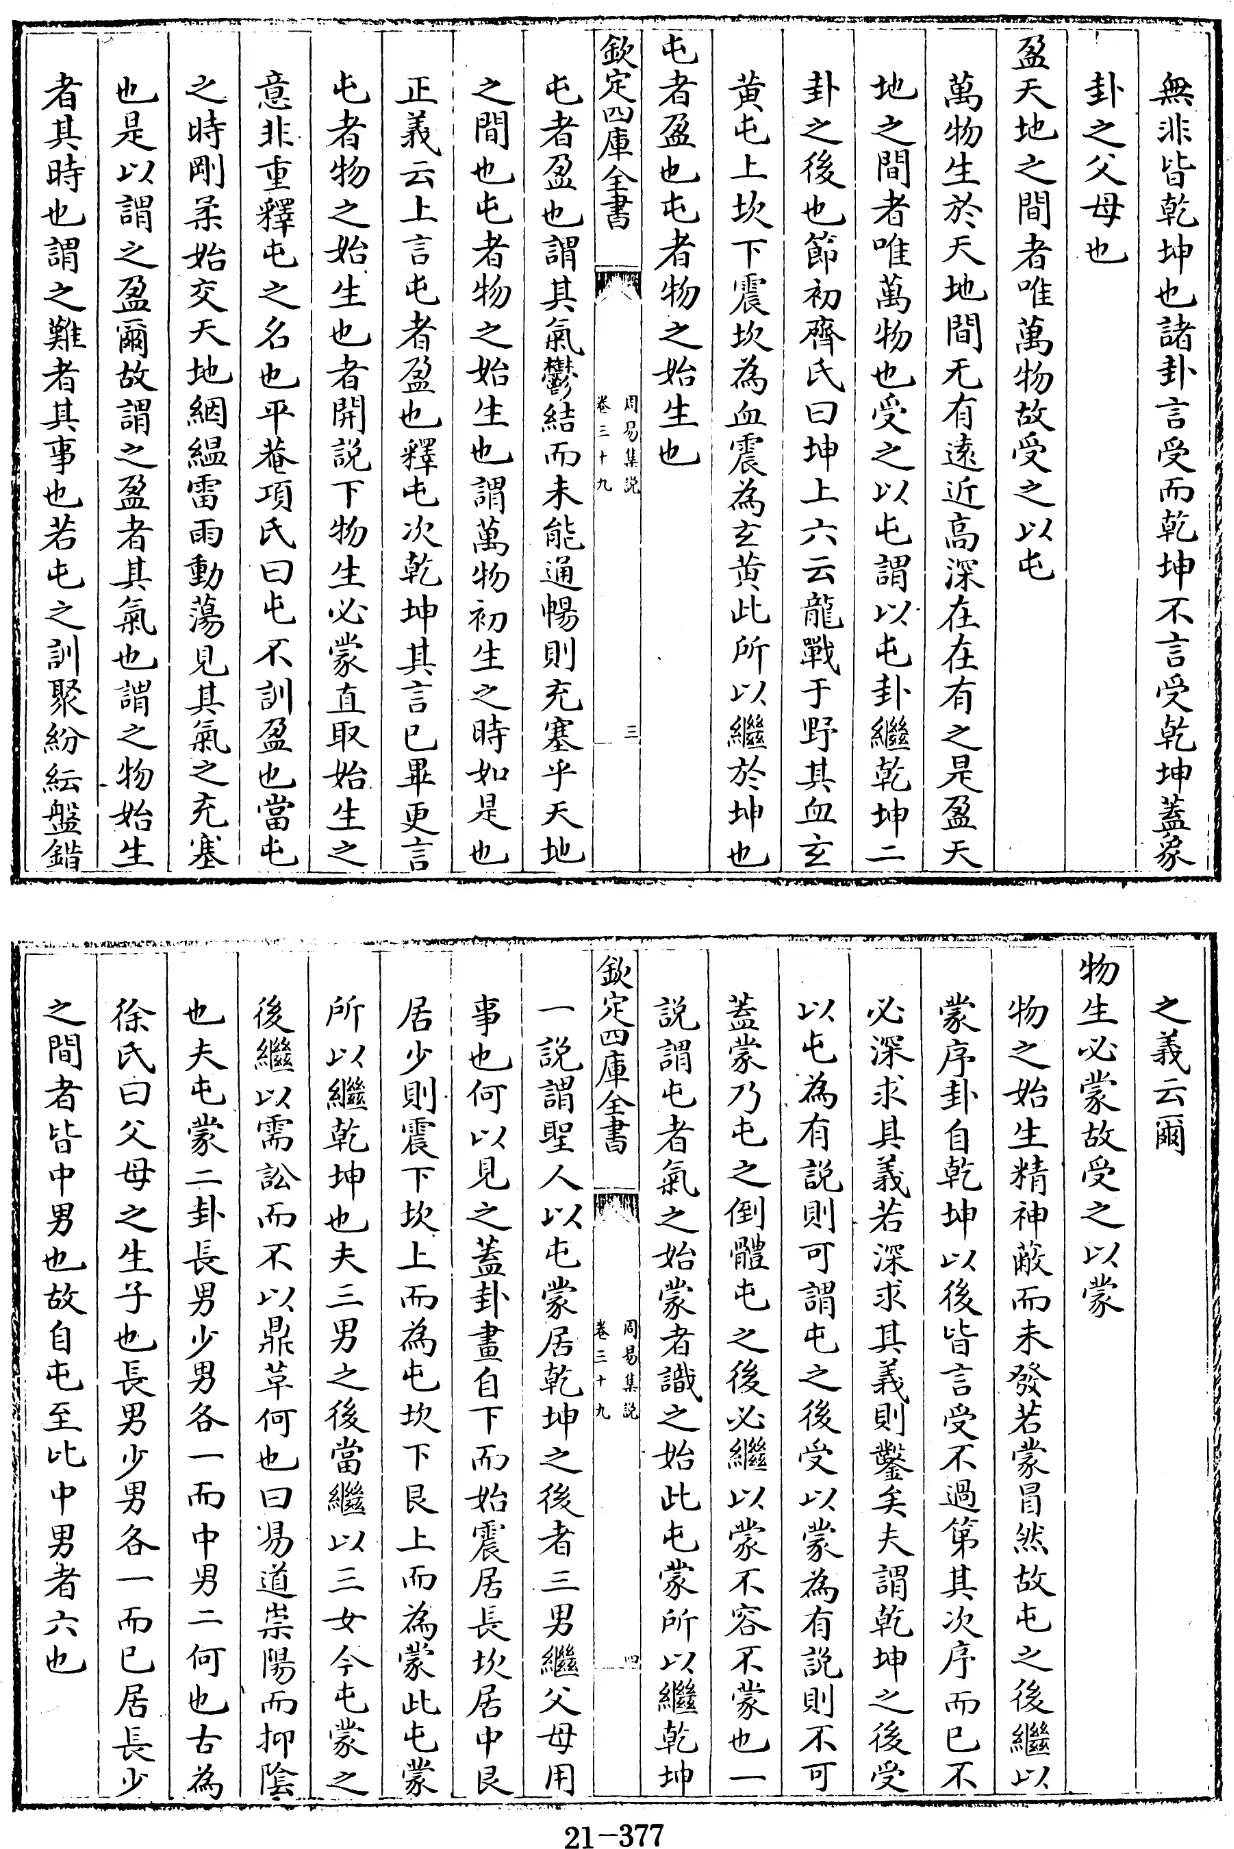 無非皆乾坤也諸卦言受而乾坤不言受乾坤蓋象
卦之父母也
盈天地之間者唯萬物故受之以屯
萬物生於天地間无有遠近高深在在有之是盈天
地之間者唯萬物也受之以屯謂以屯卦繼乾坤二
卦之後也節初齊氏曰坤上六云龍戰于野其血玄
黄屯上坎下震坎為血震為玄黄此所以繼於坤也
屯者盈也屯者物之始生也
欽定四庫全書
周易集説
卷三十九
三
屯者盈也謂其氣鬱結而未能通暢則充塞乎天地
之間也屯者物之始生也謂萬物初生之時如是也
正義云上言屯者盈也釋屯次乾坤其言已畢更言
屯者物之始生也者開説下物生必蒙直取始生之
意非重釋屯之名也平菴項氏曰屯不訓盈也當屯
之時剛柔始交天地絪縕雷雨動蕩見其氣之充塞
也是以謂之盈爾故謂之盈者其氣也謂之物始生
者其時也謂之難者其事也若屯之訓聚紛紜盤錯
之義云爾
物生必蒙故受之以蒙
物之始生精神蔽而未發若蒙冒然故屯之後繼以
蒙序卦自乾坤以後皆言受不過第其次序而已不
必深求其義若深求其義則鑿矣夫謂乾坤之後受
以屯為有説則可謂屯之後受以蒙為有説則不可
蓋蒙乃屯之倒體屯之後必繼以蒙不容不蒙也一
説謂屯者氣之始蒙者識之始此屯蒙所以繼乾坤
欽定四庫全書
周易集説
卷三十九
四
一説謂聖人以屯蒙居乾坤之後者三男繼父母用
事也何以見之蓋卦畫自下而始震居長坎居中艮
居少則震下坎上而為屯坎下艮上而為蒙此屯蒙
所以繼乾坤也夫三男之後當繼以三女今屯蒙之
後繼以需訟而不以鼎革何也曰易道崇陽而抑陰
也夫屯蒙二卦長男少男各一而中男二何也古為
徐氏曰父母之生子也長男少男各一而已居長少
之間者皆中男也故自屯至比中男者六也
21-377